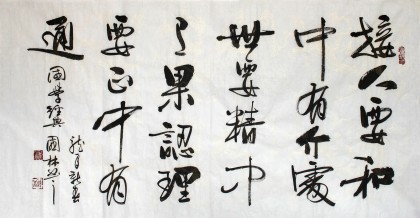 接人要和
中有介處
世要精中
有果認理
要正中有
通
國學經典 國林書